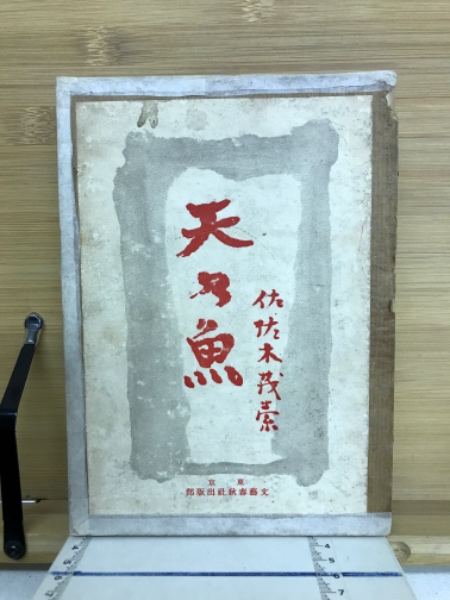 天乃魚
佐佐木茂索
東京
文藝春秋社出版部